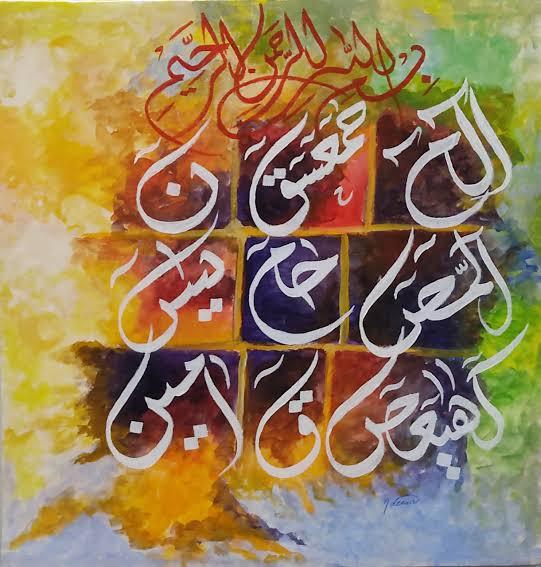 بسم الله الرحمن الرحيم
الم حمعسق ن
المص حام ياس
كهيعص ق امين